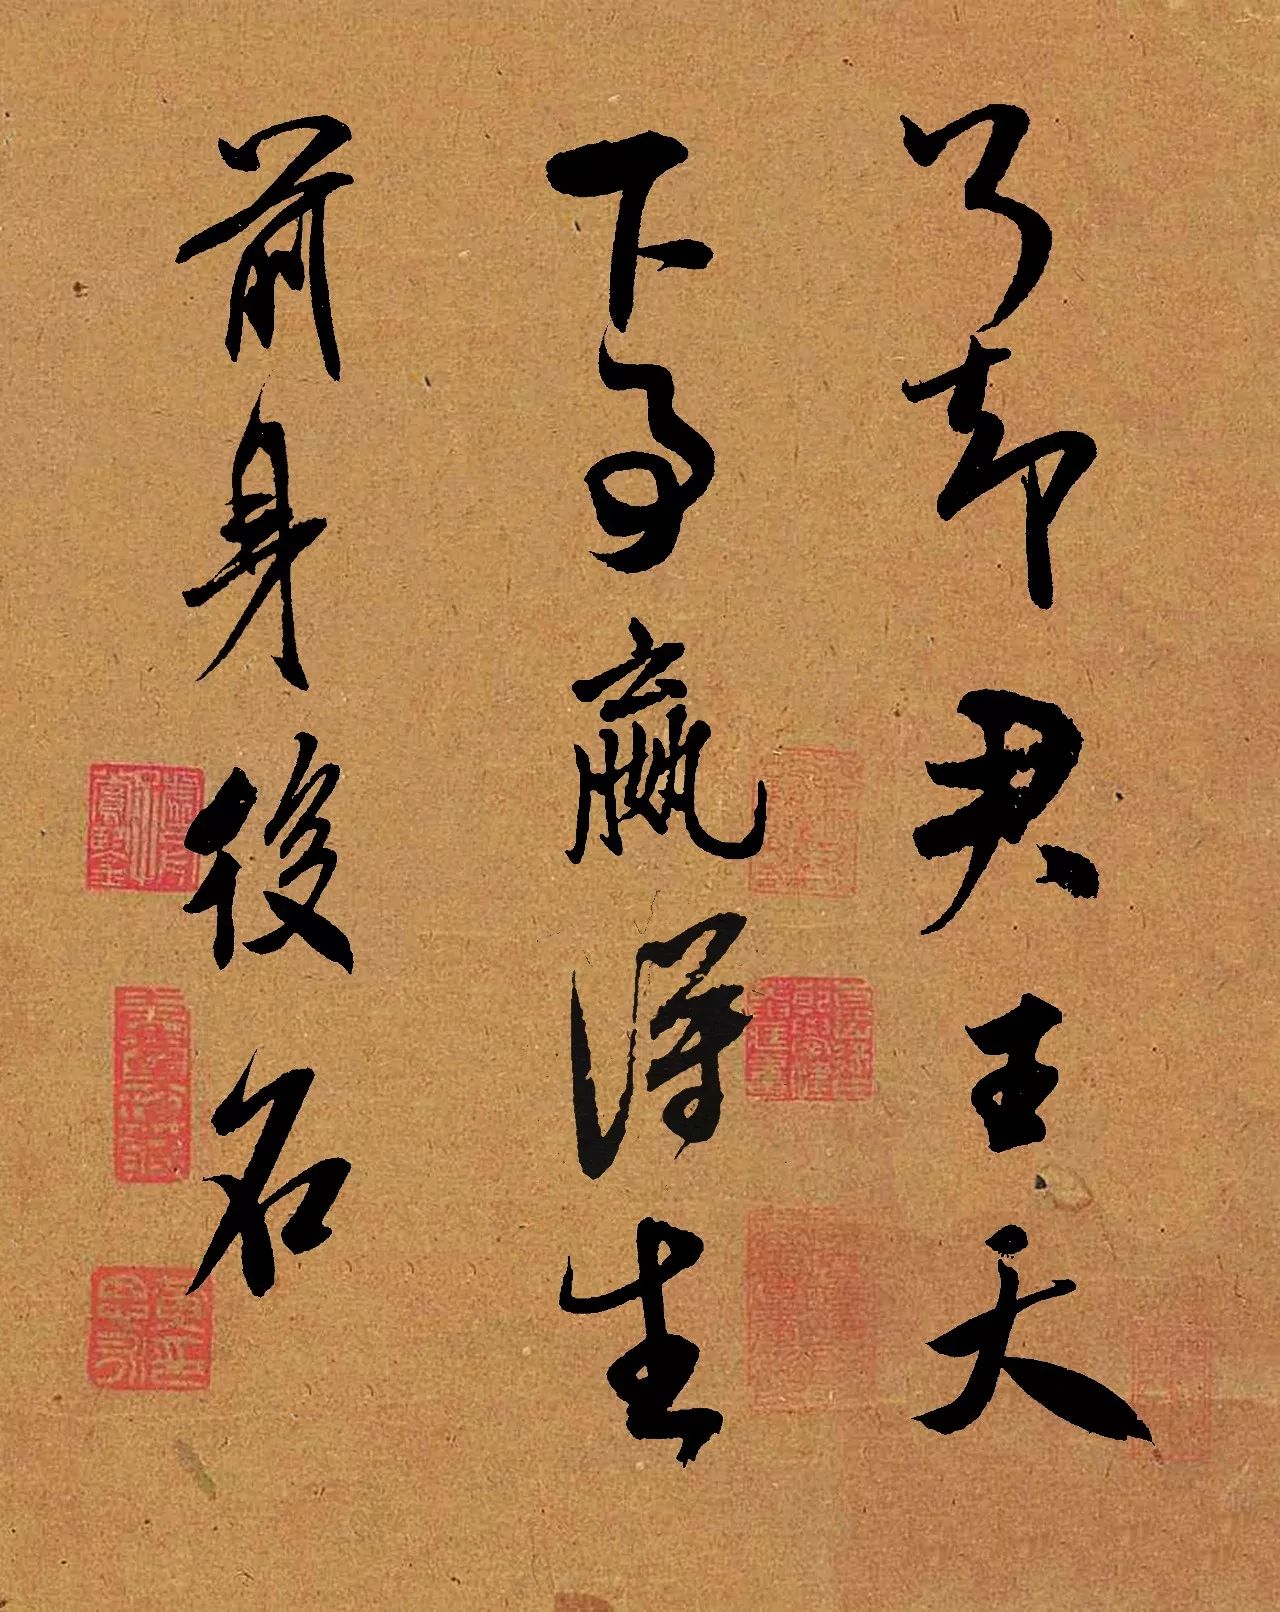 了却君王天
下事嬴得生
前身後名